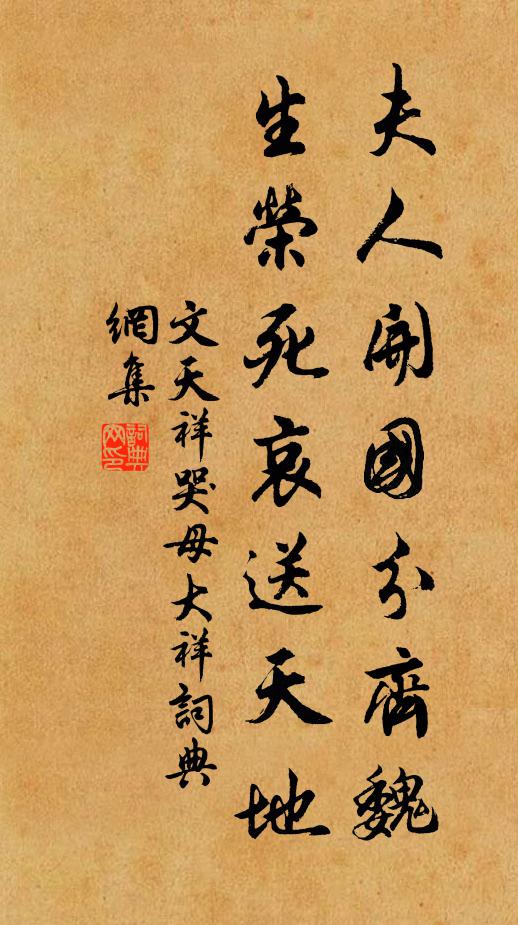 夫人開國分齊魏
生榮死哀送天地
文天祥哭母大祥詞典
網集
詞典
網印